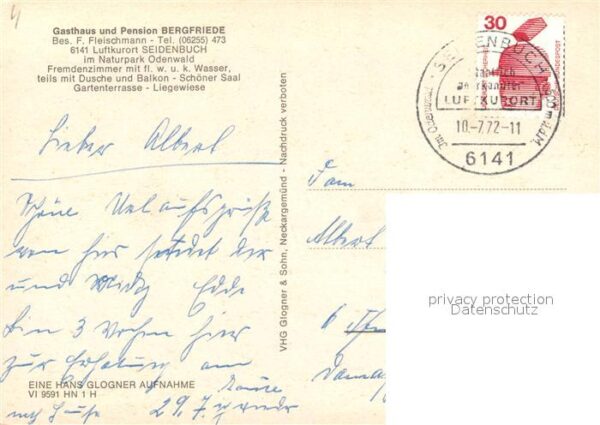 Gasthaus und Pension BERGFRIEDE
Bes. F. Fleischmann - Tel. (06255) 473
6141 Luftkurort SEIDENBUCH
im Naturpark Odenwald
Fremdenzimmer mit fl. w. u. k. Wasser,
teils mit Dusche und Balkon - Schöner Saal
Gartenterrasse - Liegewiese
Lieber Albert
Schöne Urlaufsgrüße
von hier sendet der
und
bin 3 Wochen hier
zur Erholung am
29.7.
nach Hause
EINE HANS GLOGNER AUFNAHME
VI 9591 HN 1 H
VHG Glogner & Sohn, Neckargemünd - Nachdruck verboten
30
SEIDENBUCH
LUFTKURORT
10.-7.72-11
6141
Fam
Albert
6
privacy protection
Datenschutz